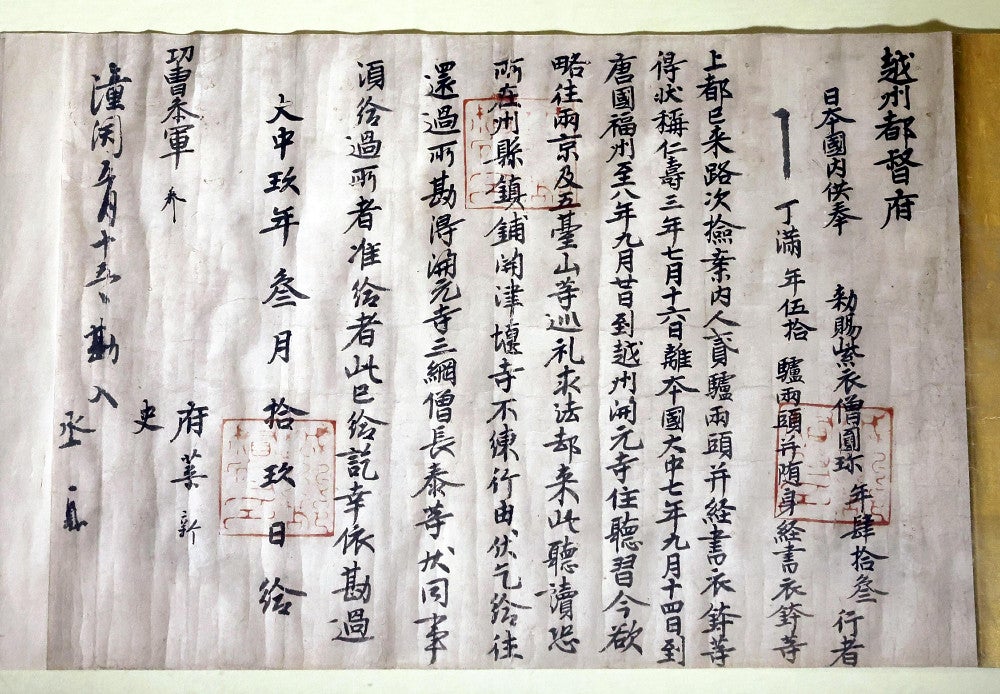 越州都督府
日本國内供奉 勅賜紫衣僧圓珍 年肆拾叁 行者
丁滿 年伍拾 驢兩頭并随身経書衣鉢等
上都已来路次撿案内人貳驢兩頭并経書衣鉢等
得狀稱仁壽三年七月十六日離本國大中七年九月十四日到
唐國福州至八年九月廿日到越州開元寺住聽習今欲
略往兩京及五臺山等巡礼求法却来此聽讀恐
所在州縣鎮鋪開津堰寺不練行由伏乞給往
還過所勘得開元寺三綱僧長泰等状同事
湏給過所者准給者此已給訖幸依勘過
大中玖年叁月拾玖日給
功曹叅軍
府葉新
史
潼関五月十五日勘入
丞